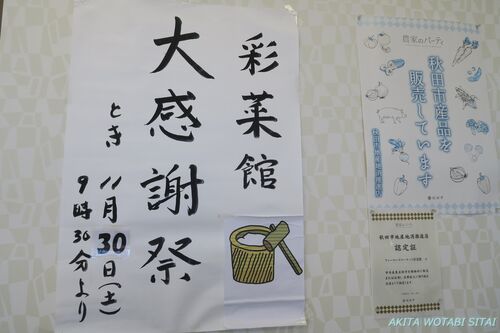 彩菜館
大感謝祭
とき 11月30日(土)
9時30分より
農家のパーティ
秋田市産品を
販売しています
秋田市地産地消推進店
認定証
AKITA WOTABI SITAI